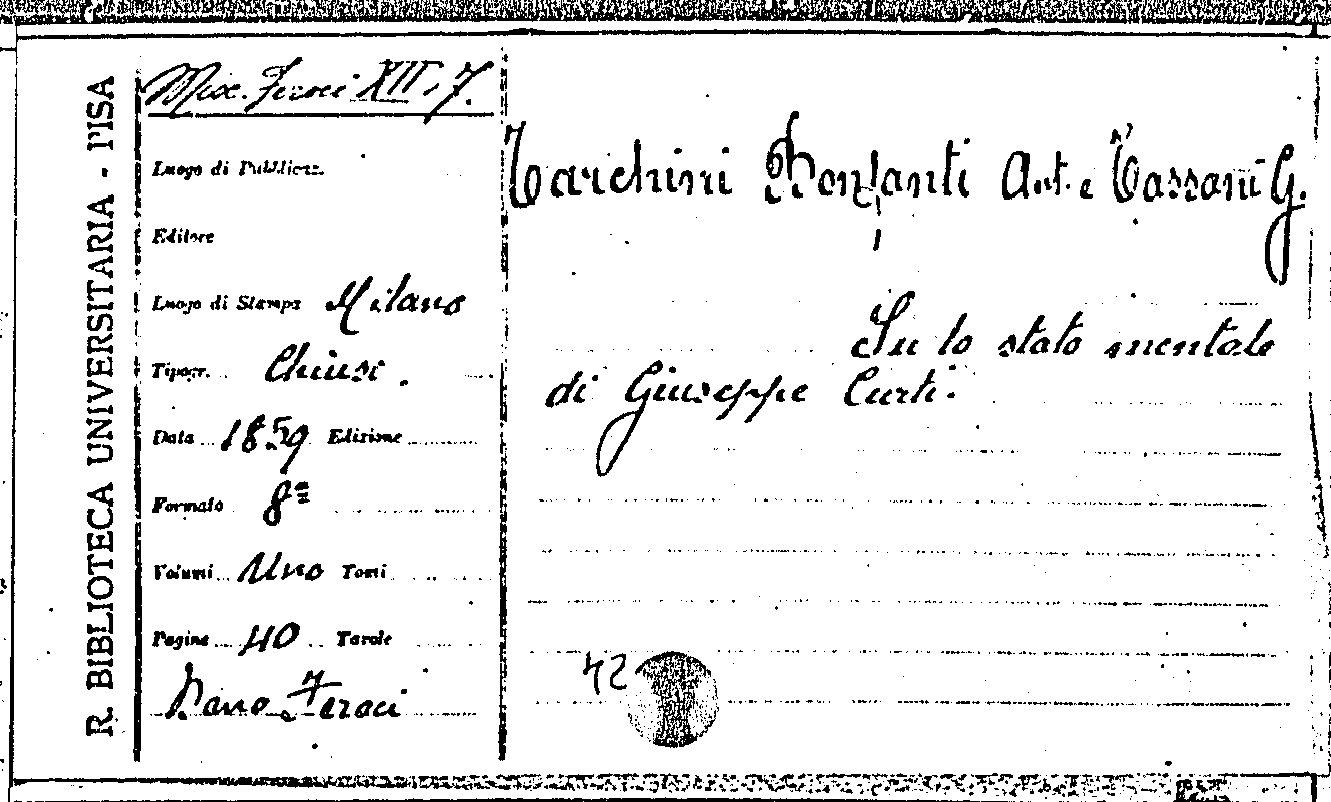 R. BIBLIOTECA UNIVERSITARIA - PISA
Misc. Feroci XIII. 7.
Luogo di Pubblicaz.
Editore
Luogo di Stampa Milano
Tipogr. Chiusi.
Data 1859 Edizione
Formato 8º
Volumi Uno Tomi
Pagine 40 Tavole
Dono Feroci
Tarchini Bonfanti Ant. e Tassani G.
Su lo stato mentale
di Giuseppe Curti.
42